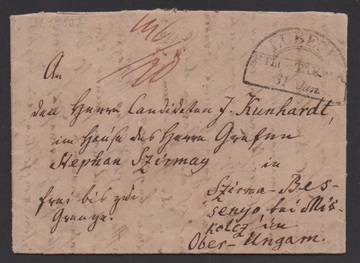 LUBEC
31 Jan.
An
den Herrn Candidaten J. Kunhardt,
im Hause des Herrn Grafen
Stephan Szirmay
in
frei bis zur
Grenze.
Szirma-Bes-
senyo, bei Mis-
kolcz in
Ober-Ungarn.